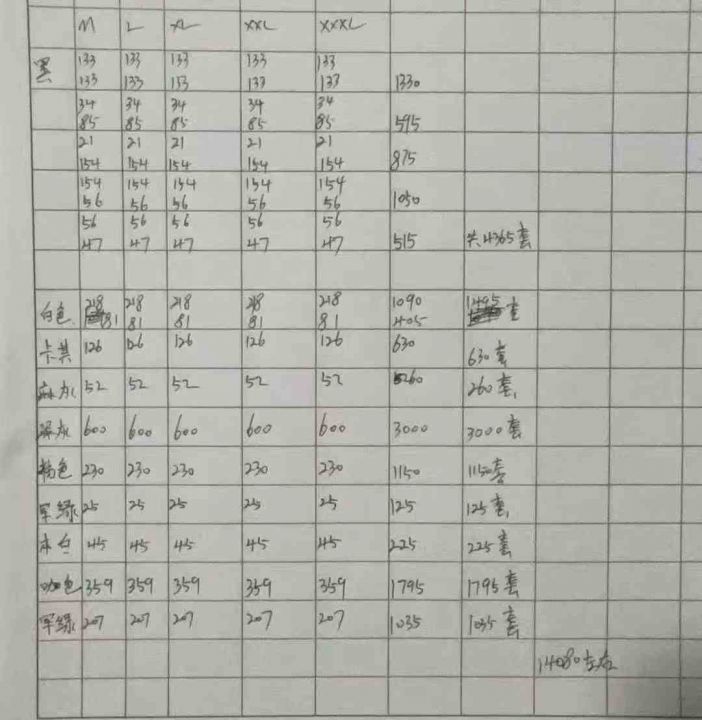 M L XL XXL XXXL
黑 133 133 133 133 133
133 133 133 133 133 1330
34 34 34 34 34
85 85 85 85 85 595
21 21 21 21 21
154 154 154 154 154 875
154 154 154 154 154
56 56 56 56 56 1050
56 56 56 56 56
47 47 47 47 47 515 共4365套
白色 218 218 218 218 218 1090 1495套
81 81 81 81 81 405
卡其 126 126 126 126 126 630 630套
麻灰 52 52 52 52 52 260 260套
深灰 600 600 600 600 600 3000 3000套
230 230 230 230 230 1150 1150套
军绿 25 25 25 25 25 125 125套
本白 45 45 45 45 45 225 225套
咖色 359 359 359 359 359 1795 1795套
军绿 207 207 207 207 207 1035 1035套
14080左右